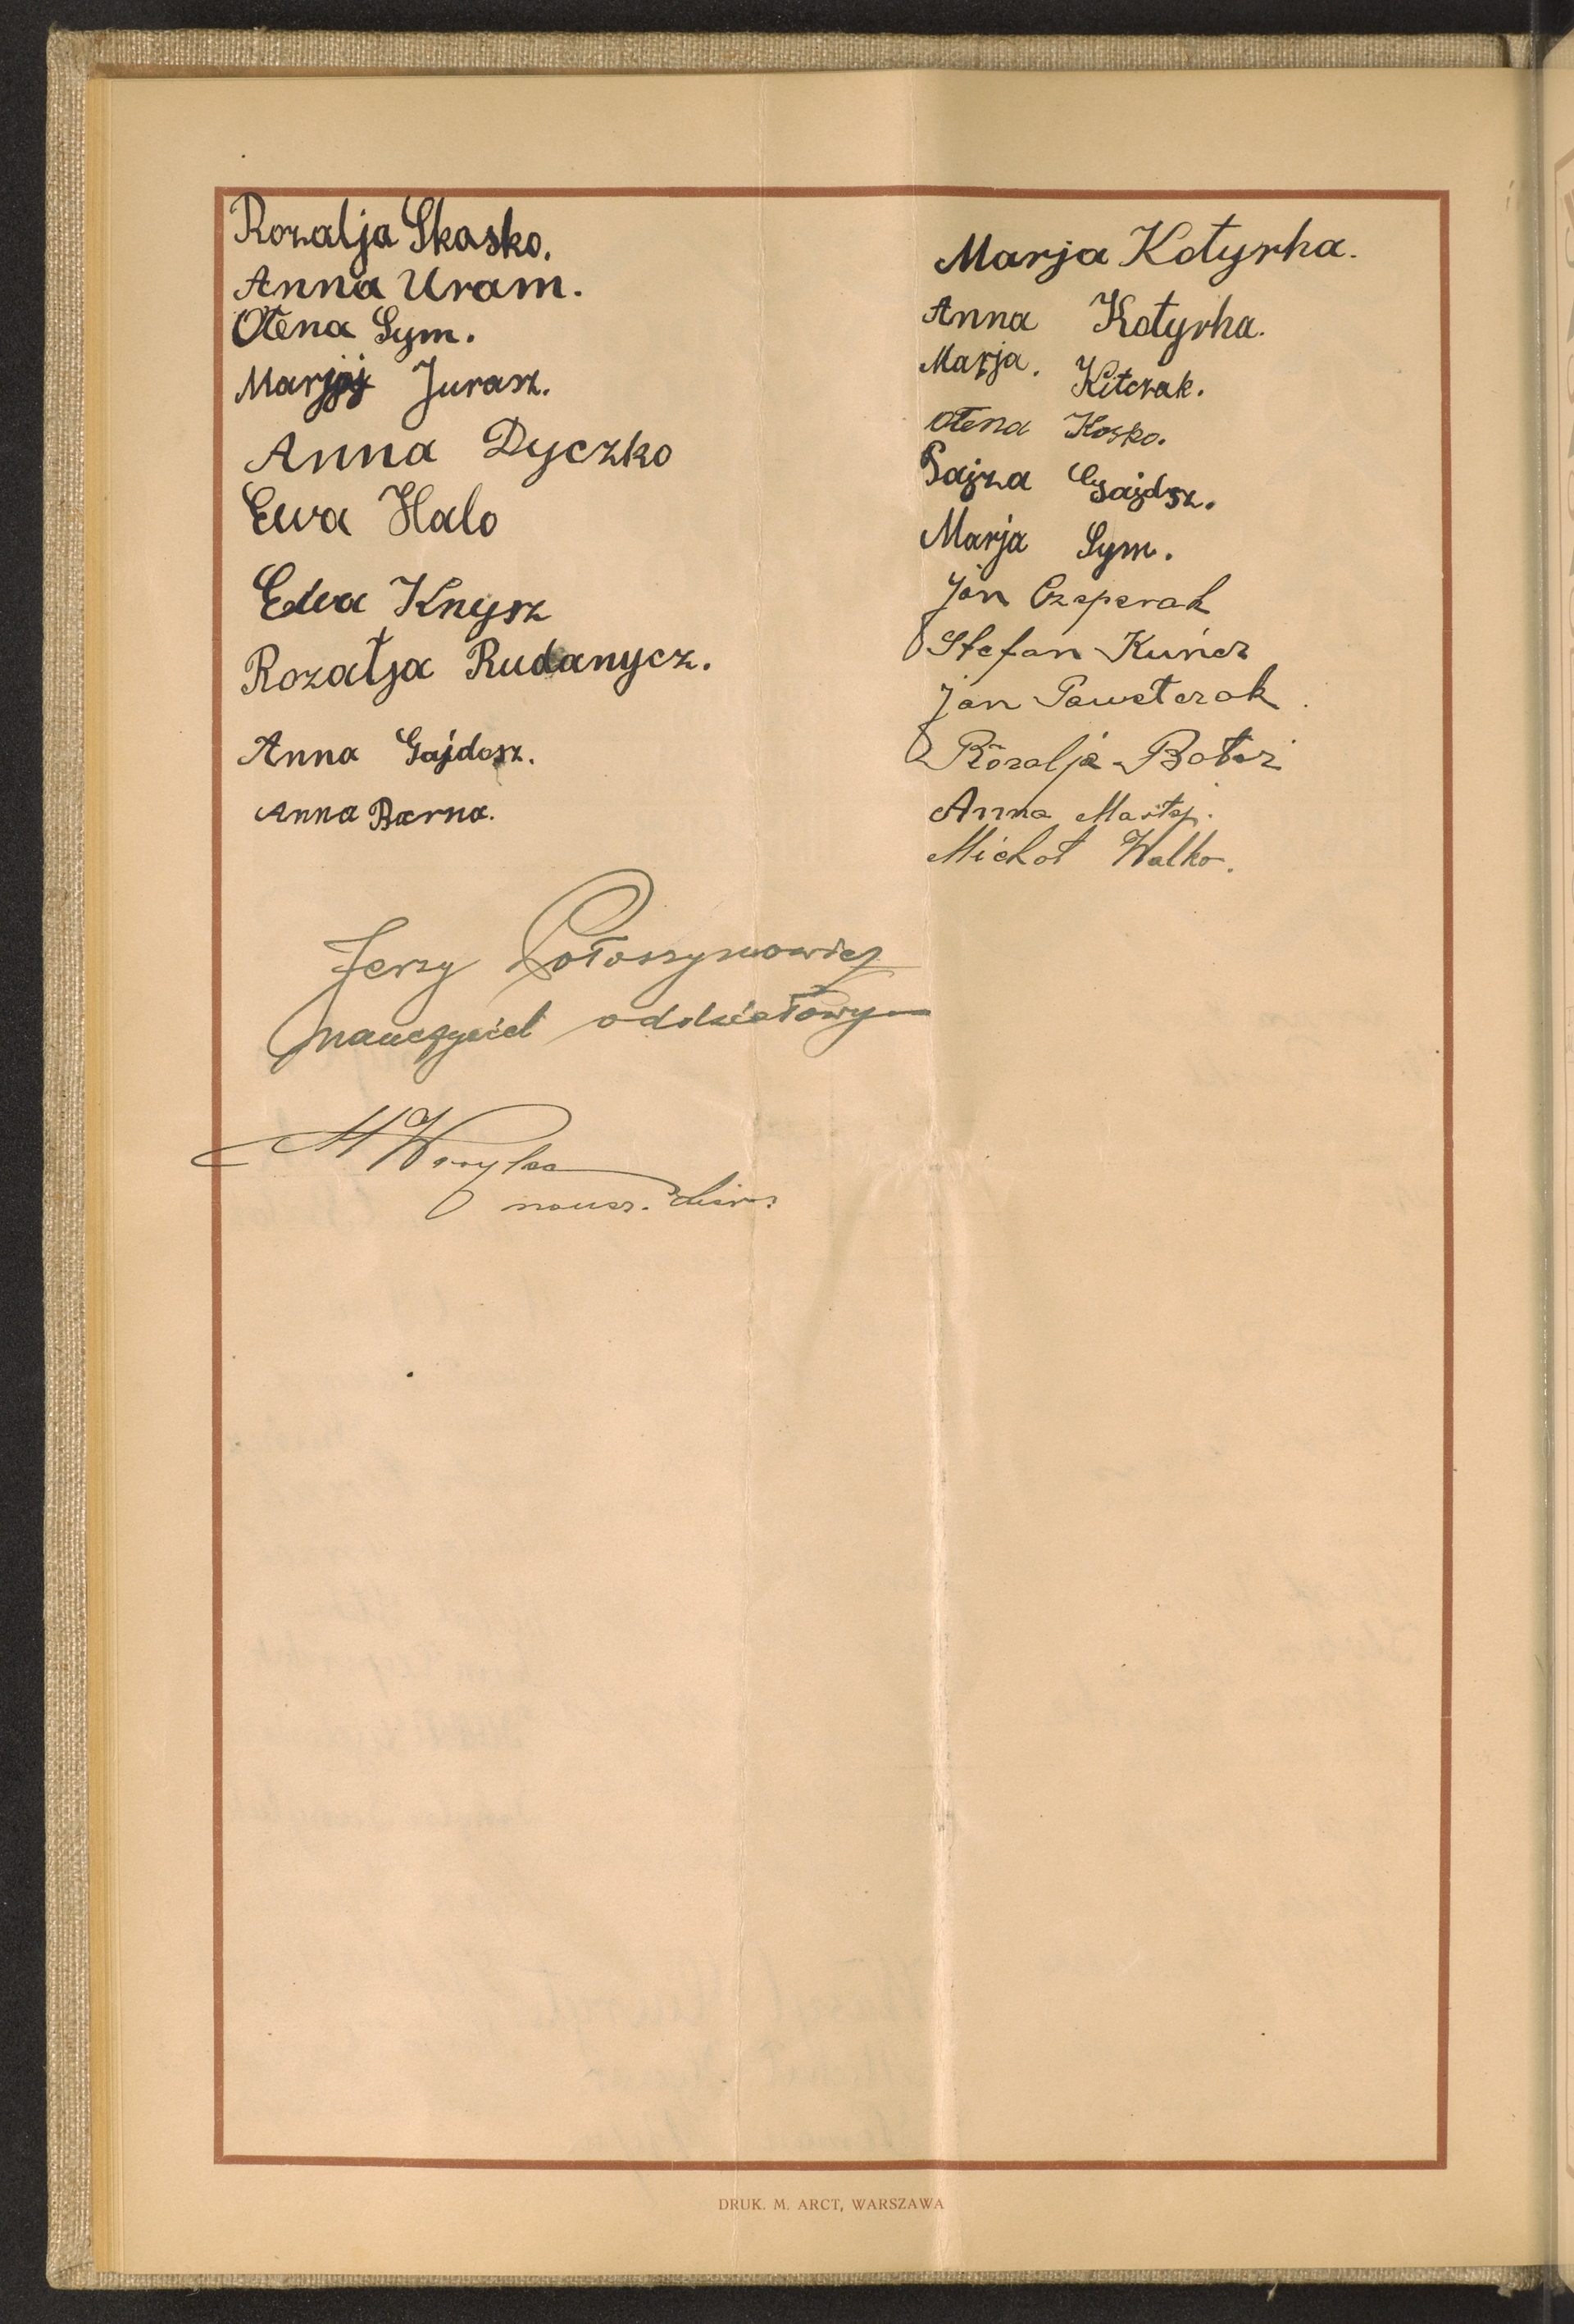 Rozalja Skasko.
Anna Uram.
Ołena Sym.
Jurasz.
Anna Dyczko
Ewa Halo
Ewa Knysz
Rozałja Rudanycz.
Anna Gajdosz.
Anna Barna.
Marja Kotyrha.
Anna Kotyrha.
Marja. Kitczak.
Ołena Kosko.
Pajza Gajdsz.
Marja Sym.
Jan Czeperak
Stefan Kuncz
Jan Pawełczak.
Rozalja
Anna
Michał Walko.
Jerzy Połoszynowicz
nauczyciel oddziałowy
naucz.
DRUK. M. ARCT, WARSZAWA